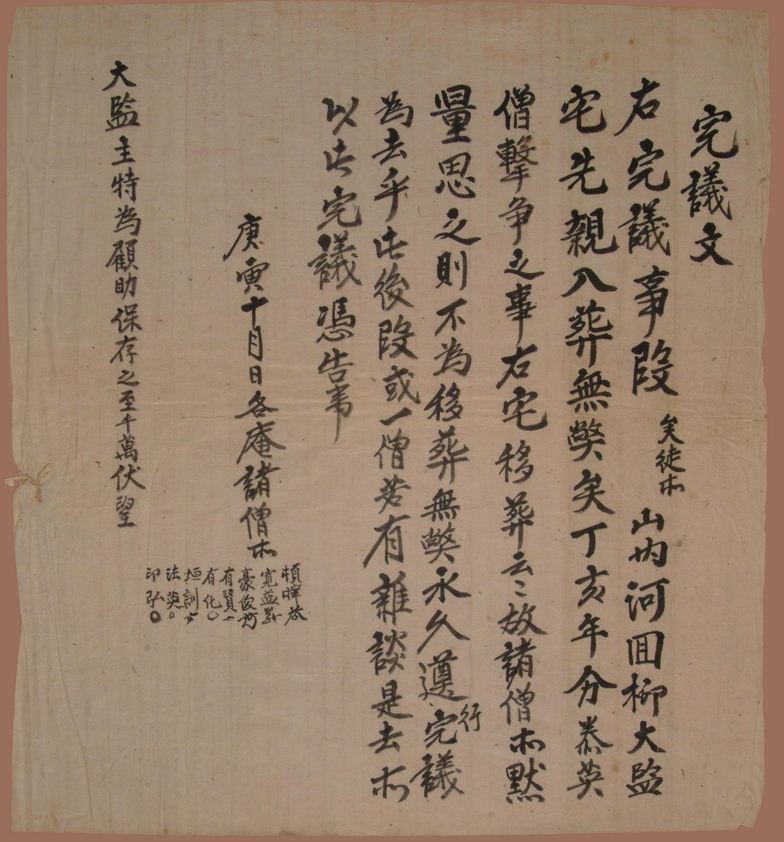 完議文
右完議事段矣徒木山內河回柳大監
宅先親入葬無弊矣丁亥年分泰英
僧擊争之事右宅移葬云〻故諸僧木默
量思之則不為移葬無弊永久遵行完議
為去乎此後段或一僧若有雜談是去木
以此完議憑告事
庚寅十月日各庵諸僧木
頓暉
寬益
豪俊
有賢
有化
垣訓
法英
印弘
大監主特為顧助保存之至千萬伏望